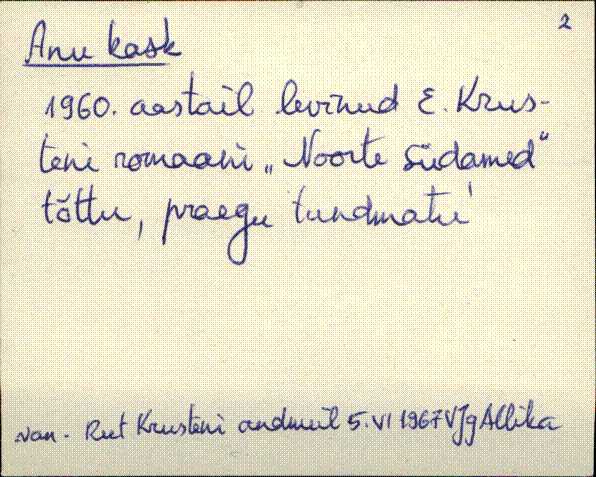 2
Anu kask
1960. aastail levinud E. Krus-
teni romaani „Noorte südamed"
tõttu, praegu tundmatu
Rut Krusteni andmeil 5.VI 1967 VJg Allika